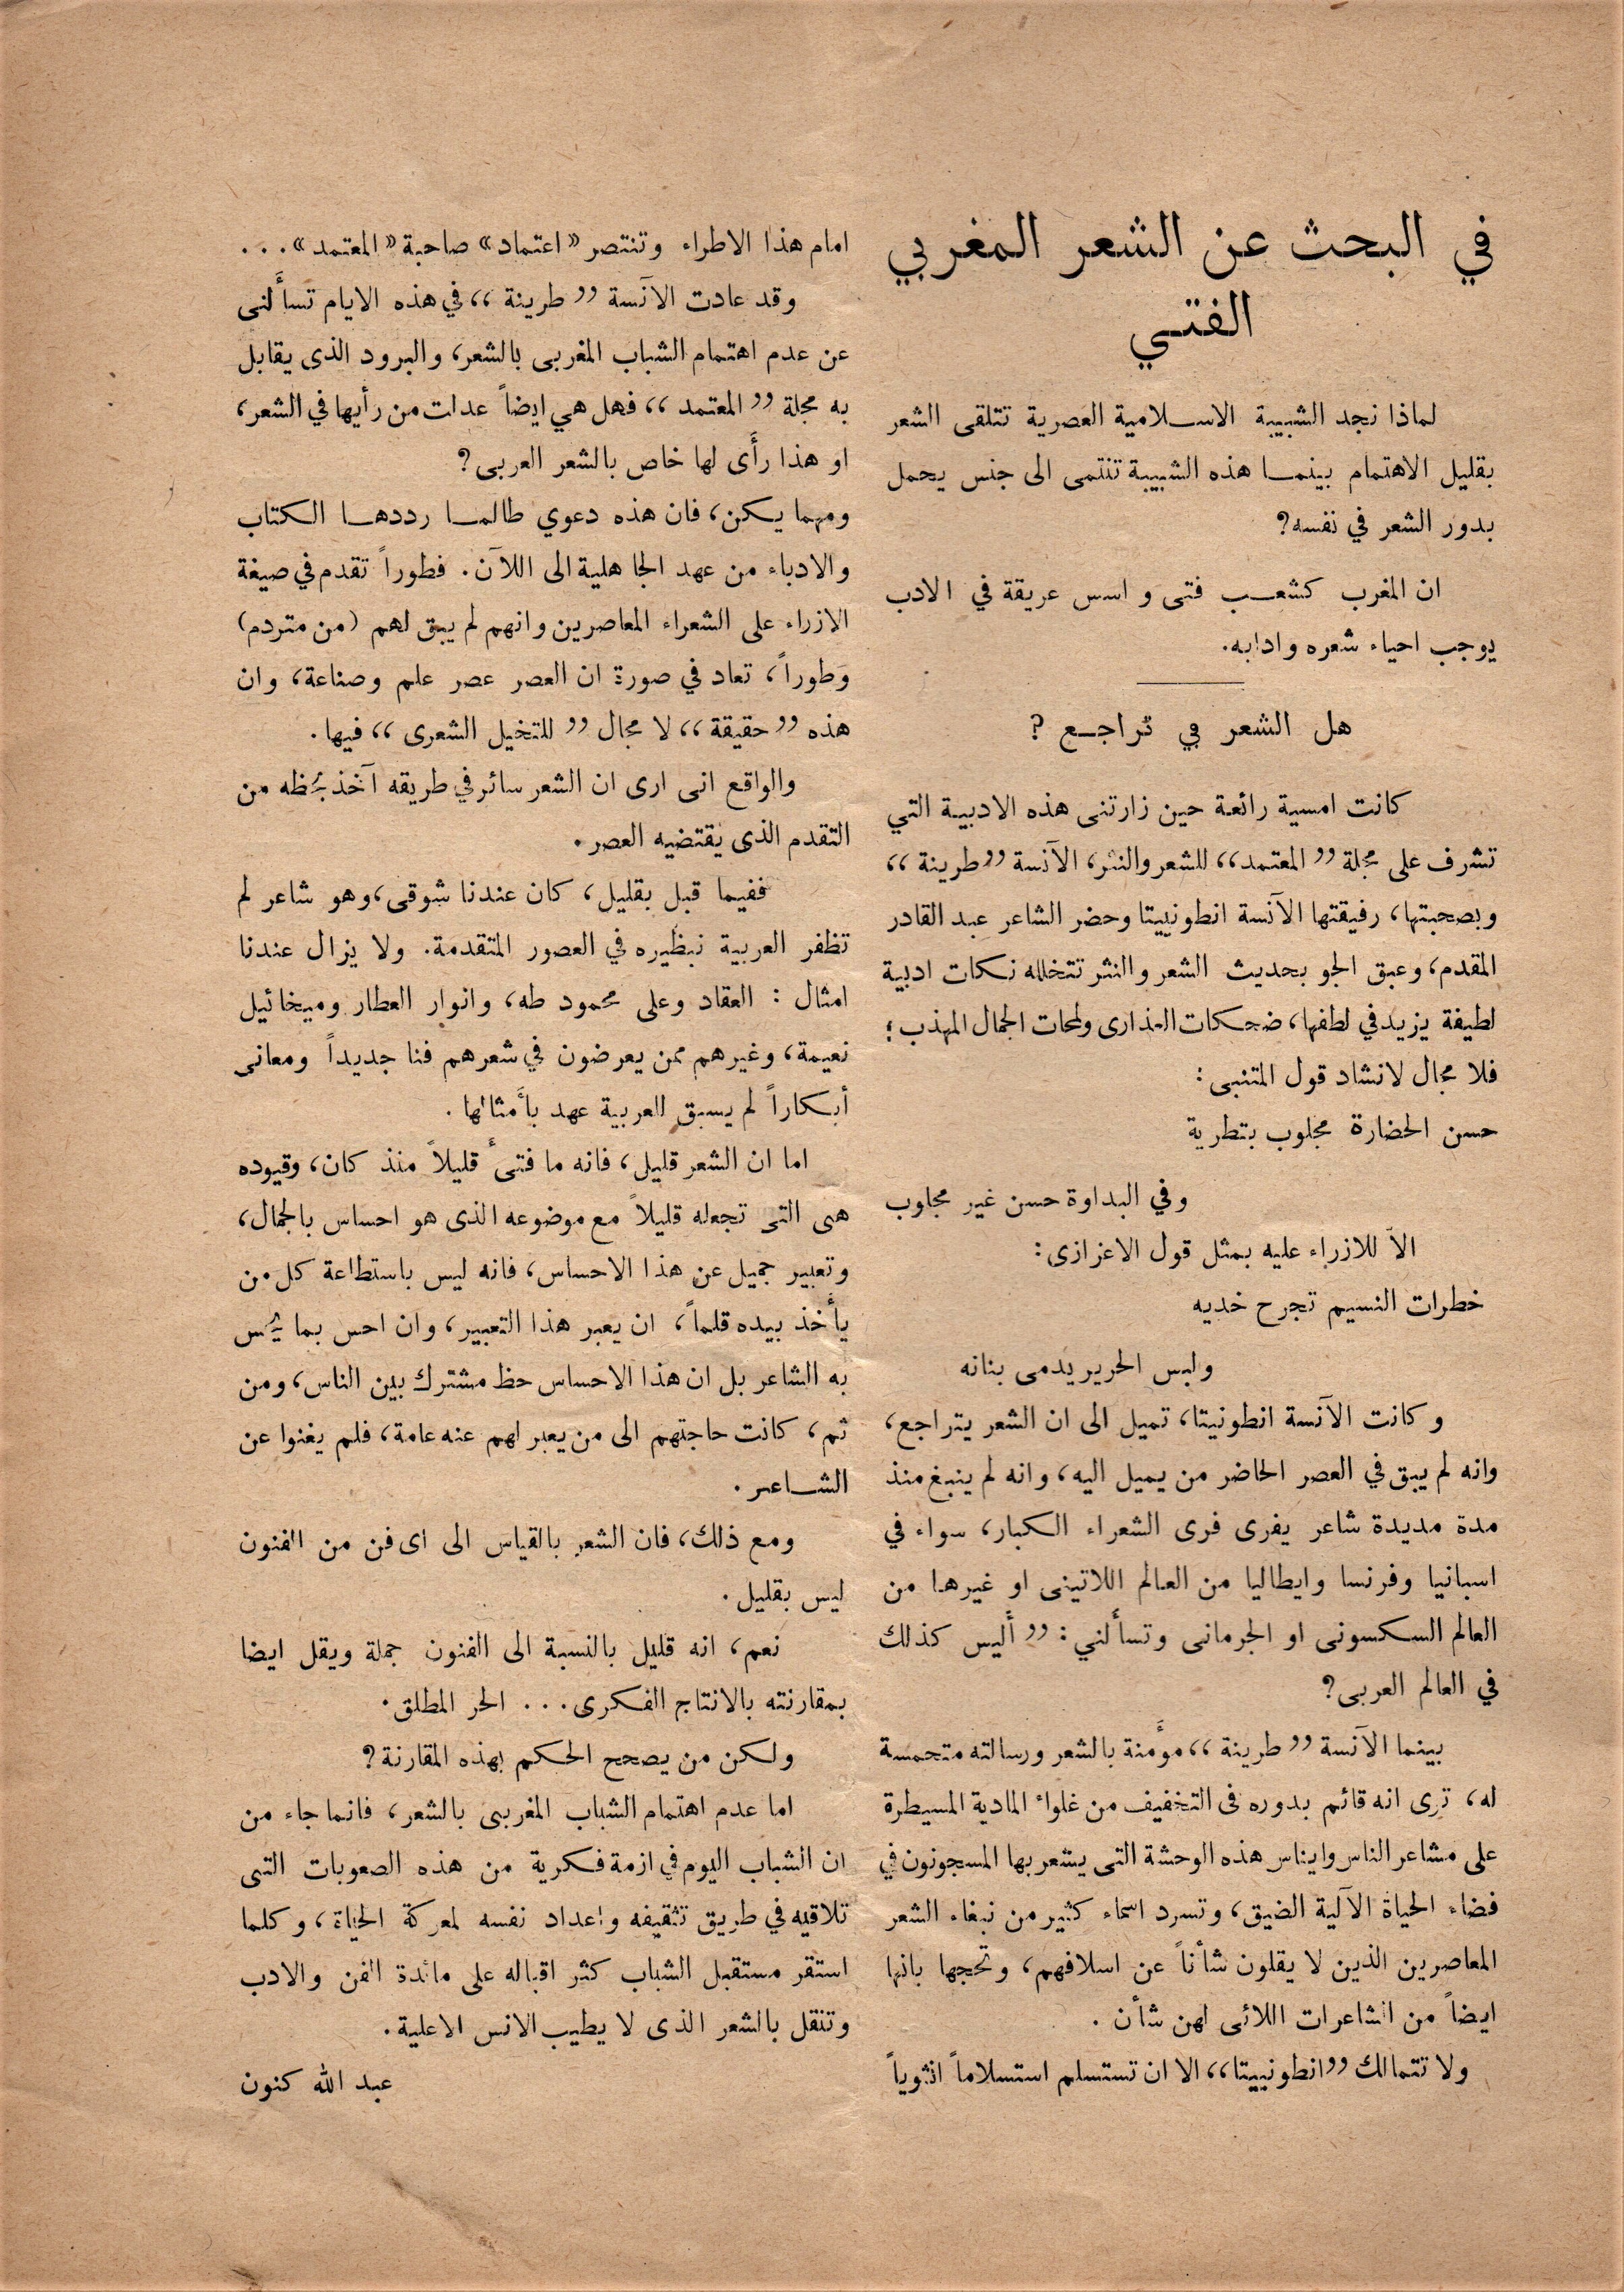 في البحث عن الشعر المغربي
الفتي
لماذا نجد الشبيبة الاسلامية العصرية تتلقى الشعر
بقليل الاهتمام بينما هذه الشبيبة تنتمى الى جنس يحمل
بدور الشعر في نفسه؟
ان المغرب كشعب فتى و اسس عريقة في الادب
يوجب احياء شعره وادابه.
هل الشعر في تراجع ؟
كانت امسية رائعة حين زارتنى هذه الاديبة التي
تشرف على مجلة ,,المعتمد،، للشعر والنثر، الآنسة ,,طرينة،،
وبصحبتها، رفيقتها الآنسة انطونييتا وحضر الشاعر عبد القادر
المقدم، وعبق الجو بحديث الشعر والنثر تتخلله نكات ادبية
لطيفة يزيد في لطفها، ضحكات العذارى ولمحات الجمال المهذب؛
فلا مجال لانشاد قول المتنبى:
حسن الحضارة مجلوب بتطرية
وفي البداوة حسن غير مجلوب
الاّ للازراء عليه بمثل قول الاعزازى:
خطرات النسيم تجرح خديه
ولبس الحرير يدمى بنانه
وكانت الآنسة انطونيتا، تميل الى ان الشعر يتراجع،
وانه لم يبق في العصر الحاضر من يميل اليه، وانه لم ينبغ منذ
مدة مديدة شاعر يفرى فرى الشعراء الكبار، سواء في
اسبانيا وفرنسا وايطاليا من العالم اللاتينى او غيرها من
العالم السكسونى او الجرمانى وتسألني: ,,أليس كذلك
في العالم العربى؟
بينما الآنسة ,,طرينة،، مؤمنة بالشعر ورسالته متحمسة
له، ترى انه قائم بدوره فى التخفيف من غلواء المادية المسيطرة
على مشاعر الناس وايناس هذه الوحشة التى يشعر بها المسجونون في
فضاء الحياة الآلية الضيق، وتسرد اسماء كثير من نبغاء الشعر
المعاصرين الذين لا يقلون شأناً عن اسلافهم، وتحجها بانها
ايضاً من الشاعرات اللائى لهن شأن .
ولا تتمالك ,,انطونييتا،، الا ان تستسلم استسلاماً انثوياً
امام هذا الاطراء وتنتصر «اعتماد» صاحبة «المعتمد»...
وقد عادت الآنسة ,,طرينة،، في هذه الايام تسألنى
عن عدم اهتمام الشباب المغربى بالشعر، والبرود الذى يقابل
به مجلة ,,المعتمد،، فهل هي ايضاً عدلت من رأيها في الشعر،
او هذا رأى لها خاص بالشعر العربى؟
ومهما يكن، فان هذه دعوي طالما رددها الكتاب
والادباء من عهد الجاهلية الى اللآن. فطوراً تقدم في صيغة
الازراء على الشعراء المعاصرين وانهم لم يبق لهم (من متردم)
وطوراً، تعاد في صورة ان العصر عصر علم وصناعة، وان
هذه ,,حقيقة،، لا مجال ,,للتخيل الشعرى،، فيها.
والواقع انى ارى ان الشعر سائر في طريقه آخذ بحظه من
التقدم الذى يقتضيه العصر.
ففيما قبل بقليل، كان عندنا شوقى، وهو شاعر لم
تظفر العربية بنظيره في العصور المتقدمة. ولا يزال عندنا
امثال : العقاد وعلى محمود طه، وانوار العطار وميخائيل
نعيمة، وغيرهم ممن يعرضون في شعرهم فنا جديداً ومعانى
أبكاراً لم يسبق للعربية عهد بأمثالها .
اما ان الشعر قليل، فانه ما فتىأ قليلاً منذ كان، وقيوده
هى التى تجعله قليلاً مع موضوعه الذى هو احساس بالجمال،
وتعبير جميل عن هذا الاحساس، فانه ليس باستطاعة كل من
يأخذ بيده قلماً، ان يعبر هذا التعبير، وان احس بما يحس
به الشاعر بل ان هذا الاحساس حظ مشترك بين الناس، ومن
ثم، كانت حاجتهم الى من يعبر لهم عنه عامة، فلم يغنوا عن
الشاعر.
ومع ذلك، فان الشعر بالقياس الى اى فن من الفنون
ليس بقليل.
نعم، انه قليل بالنسبة الى الفنون جملة ويقل ايضا
بمقارنته بالانتاج الفكرى... الحر المطلق.
ولكن من يصحح الحكم بهذه المقارنة؟
اما عدم اهتمام الشباب المغربى بالشعر، فانما جاء من
ان الشباب اليوم في ازمة فكرية من هذه الصعوبات التى
تلاقيه في طريق تثقيفه واعداد نفسه لمعركة الحياة، وكلما
استقر مستقبل الشباب كثر اقباله على مائدة الفن والادب
وتنقل بالشعر الذى لا يطيب الانس الاعليه.
عبد الله كنون